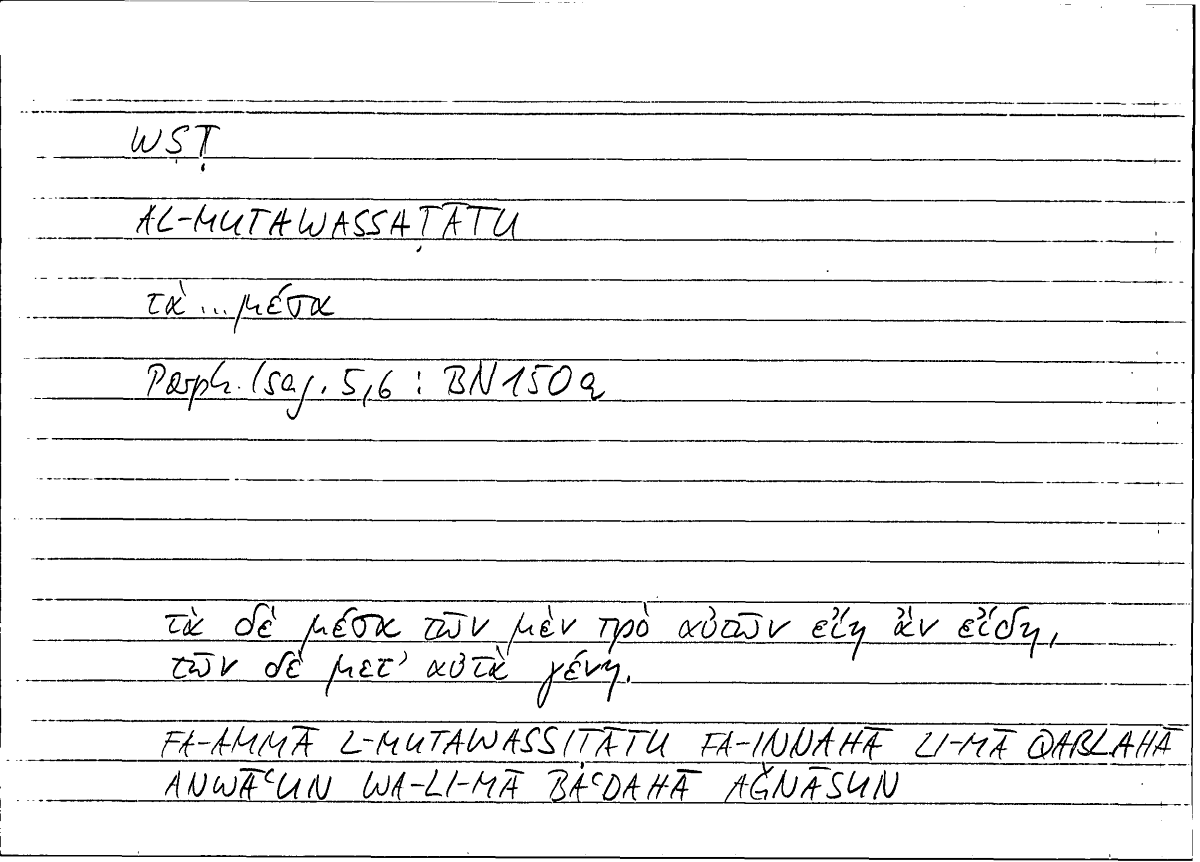 WṢṬ
AL-MUTAWASSAṬĀTU
τὰ ... μέσα
Porph. Isag. 5,6 : BN 150a
τὰ δὲ μέσα τῶν μὲν πρὸ αὐτῶν εἴη ἂν εἴδη,
τῶν δὲ μετ' αὐτὰ γένη.
FA-AMMĀ L-MUTAWASSIṬĀTU FA-INNAHĀ LI-MĀ QABLAHĀ
ANWĀʿUN WA-LI-MĀ BAʿDAHĀ AǦNĀSUN